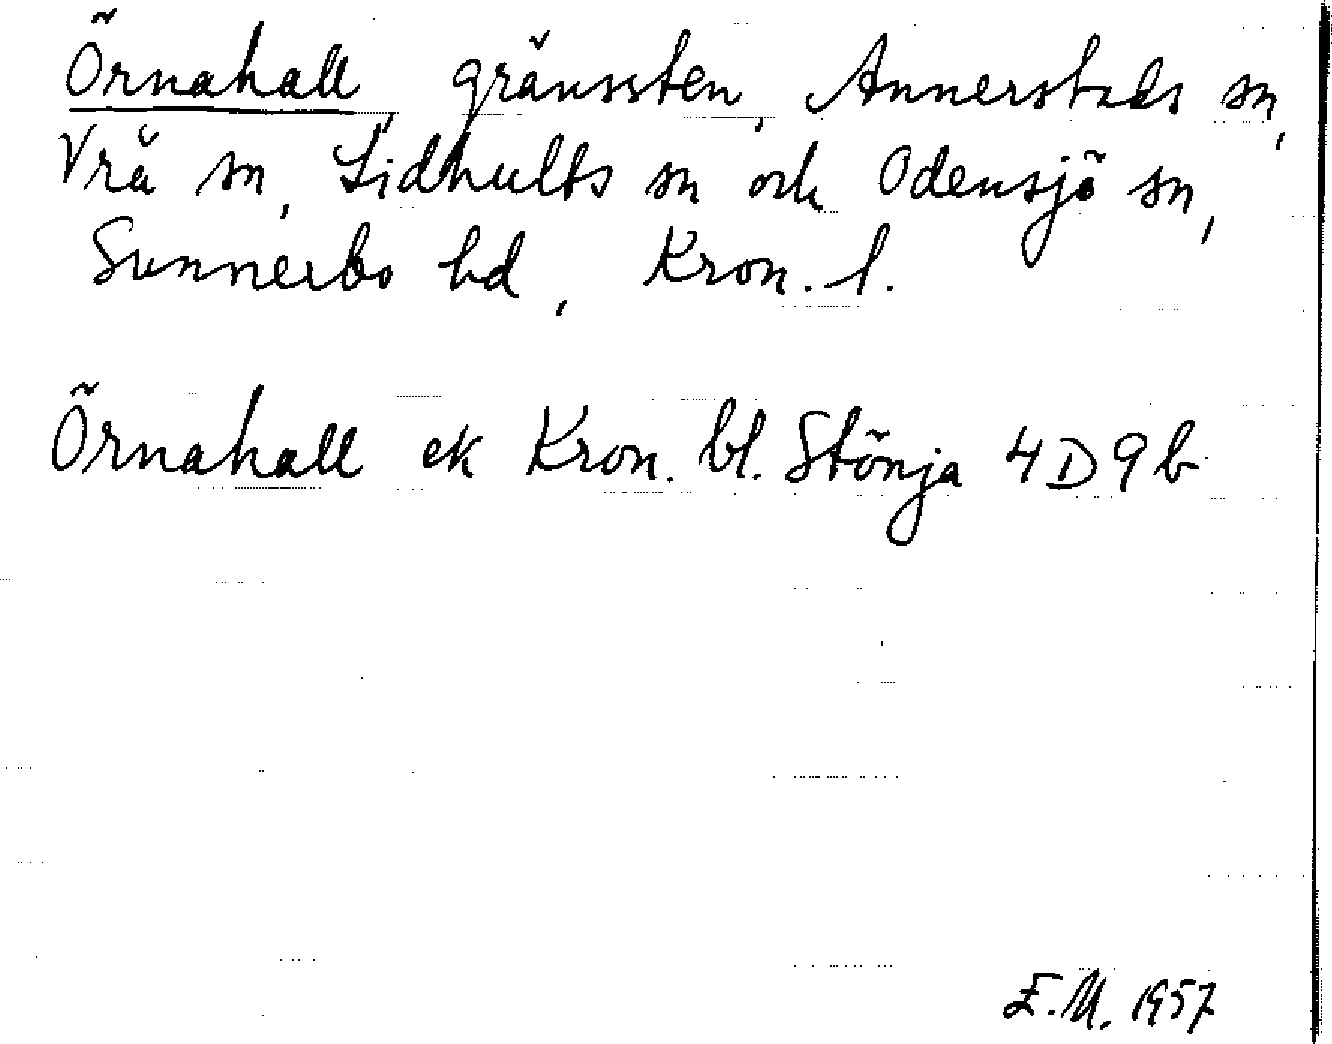 Örnahall, gränssten, Annerstads sn,
Vrå sn, Lidhults sn och Odensjö sn,
Sunnerbo hd, Kron. l.
Örnahall ek Kron. bl. Stönja 4D9b
E.M. 1957